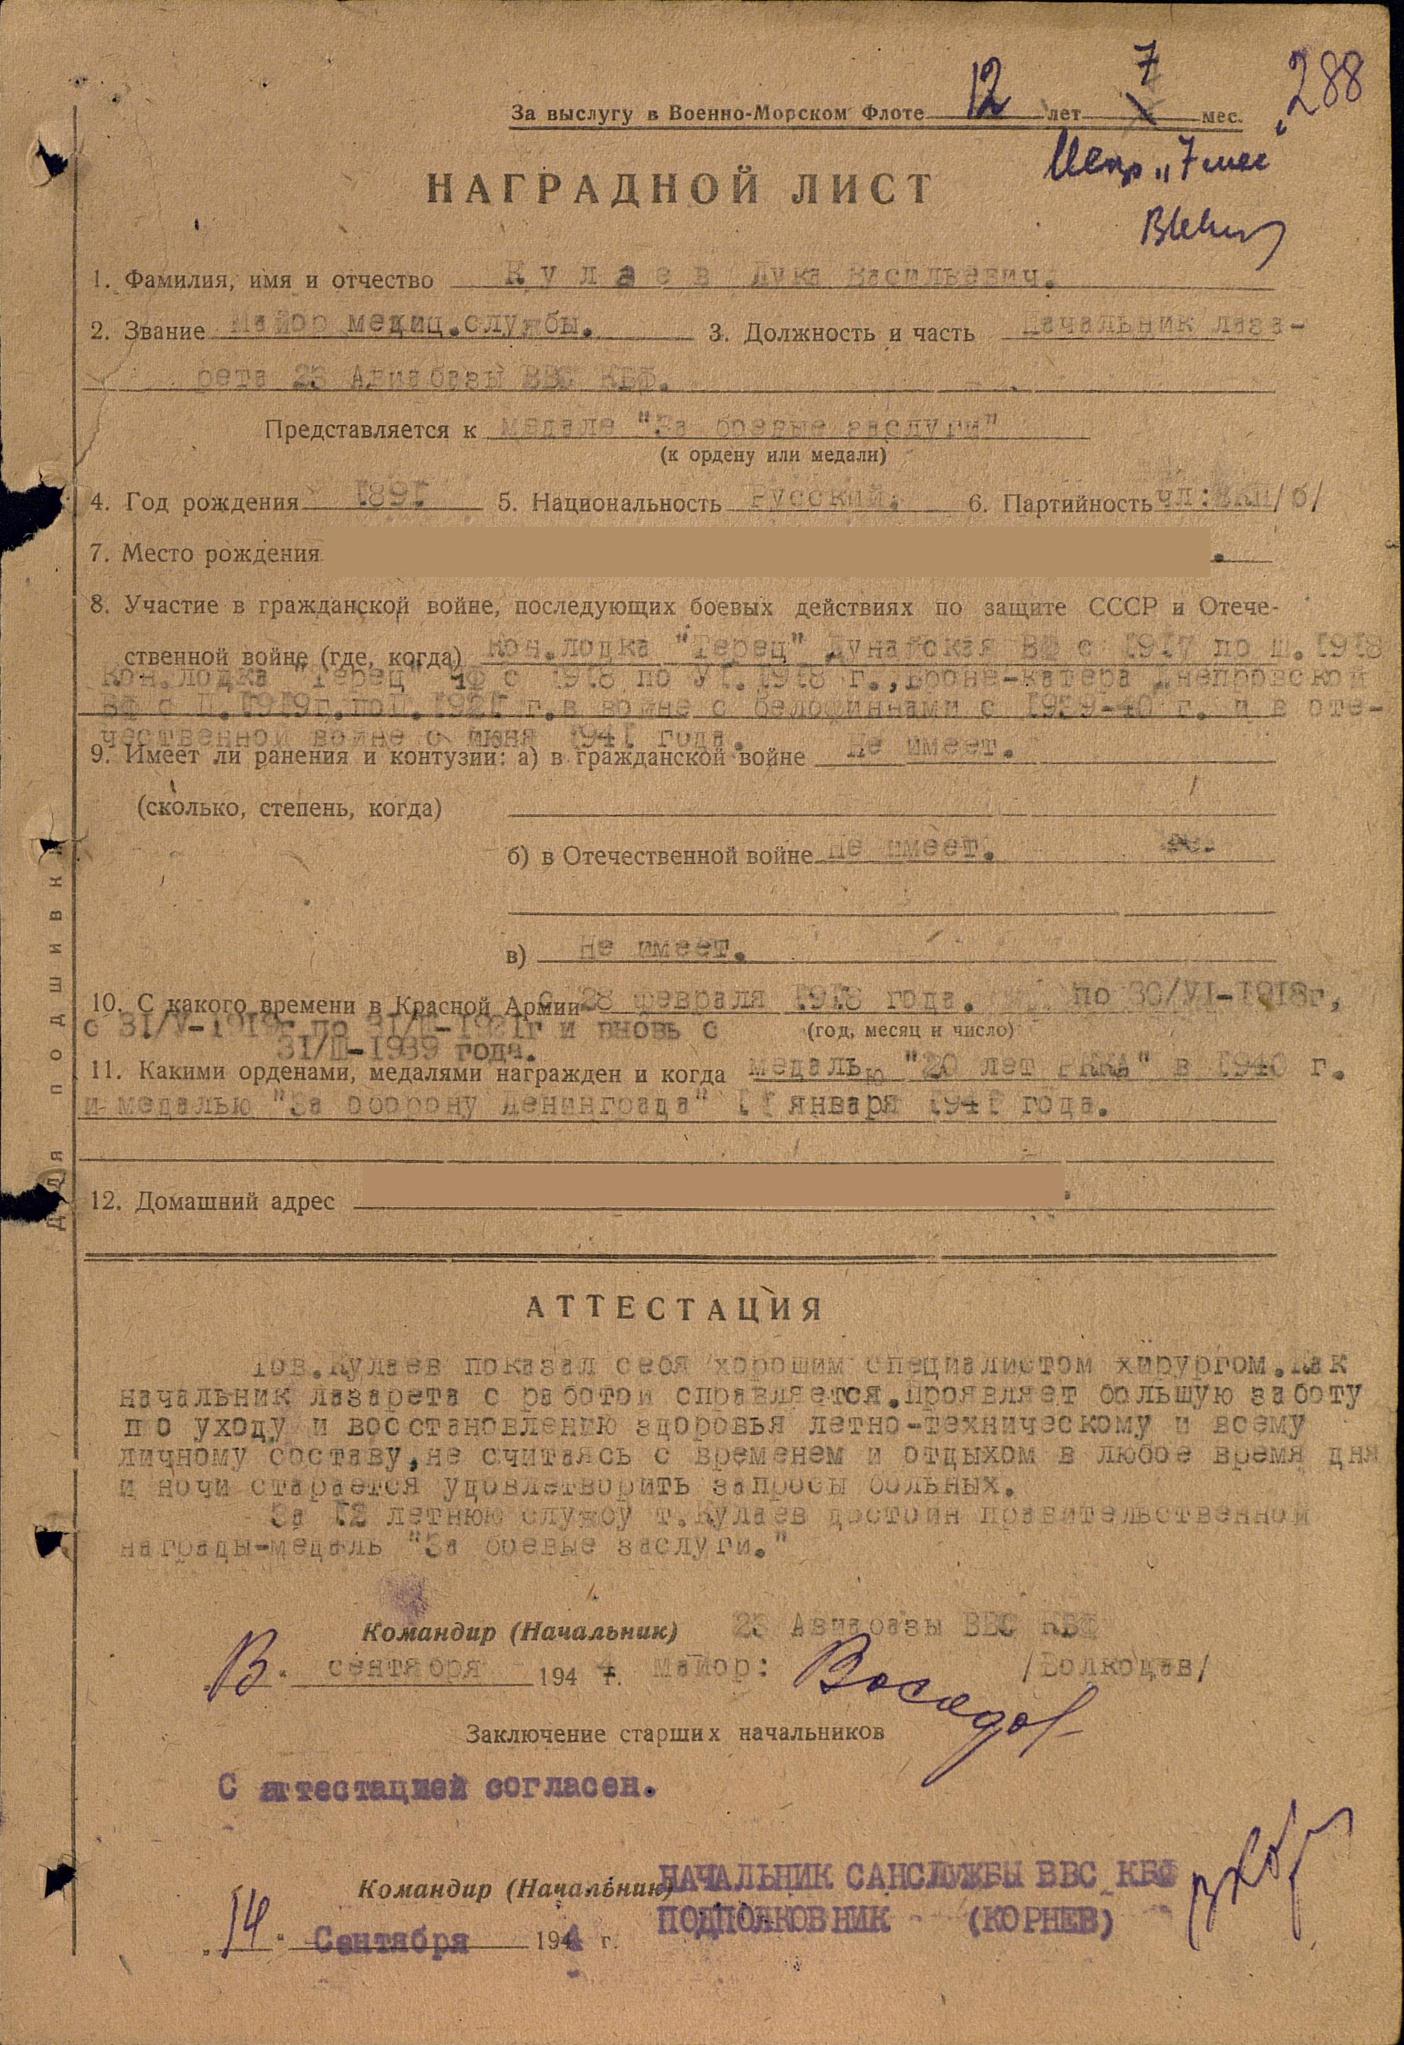 288
За выслугу в Военно-Морском Флоте 12 лет 7 мес.
"7 мес"
НАГРАДНОЙ ЛИСТ
1. Фамилия, имя и отчество Кулаев Лука Васильевич.
2. Звание Майор медиц.службы. 3. Должность и часть Начальник лаза-
рета 23 Авиабазы ВВС КБФ.
Представляется к медале "За боевые заслуги"
(к ордену или медали)
4. Год рождения 1891 5. Национальность Русский. 6. Партийность чл:ВКП/б/
7. Место рождения
8. Участие в гражданской войне, последующих боевых действиях по защите СССР и Отече-
ственной войне (где, когда) Кон.лодка "Терец" Дунайская ВФ с 1917 по Ш.1918
Кон.лодка "Терец" ЧФ с 1918 по УІ.1918 г.,Броне-катера Днепровской
ВФ с П.1919г.поП.1921 г.в войне с белофиннами с 1939-40 г. и в оте-
чественной войне с июня 1941 года.
9. Имеет ли ранения и контузии: а) в гражданской войне Не имеет.
(сколько, степень, когда)
б) в Отечественной войне Не имеет.
в) Не имеет.
10. С какого времени в Красной Армии с 28 февраля 1918 года. по 30/УІ-1918г,
с 31/У-1919г по 31/Ш-1921г и вновь с (год, месяц и число)
31/Ш-1939 года.
11. Какими орденами, медалями награжден и когда медалью "20 лет РККА" в 1940 г.
и медалью "За оборону Ленинграда" 11 января 1941 года.
12. Домашний адрес
Для подшивки
АТТЕСТАЦИЯ
Тов.Кулаев показал себя хорошим специалистом хирургом.Как
начальник лазарета с работой справляется.Проявляет большую заботу
по уходу и восстановлению здоровья летно-техническому и всему
личному составу,не считаясь с временем и отдыхом в любое время дня
и ночи старается удовлетворить запросы больных.
За 12 летнюю службу т.Кулаев достоин правительственной
награды-медаль "За боевые заслуги."
Командир (Начальник) 23 Авиабазы ВВС КБФ
сентября 1944 г. майор: /Волкодав/
Заключение старших начальников
С аттестацией согласен.
Командир (Начальник) НАЧАЛЬНИК САНСЛУЖБЫ ВВС КБФ
ПОДПОЛКОВНИК (КОРНЕВ)
"14" Сентября 1944 г.